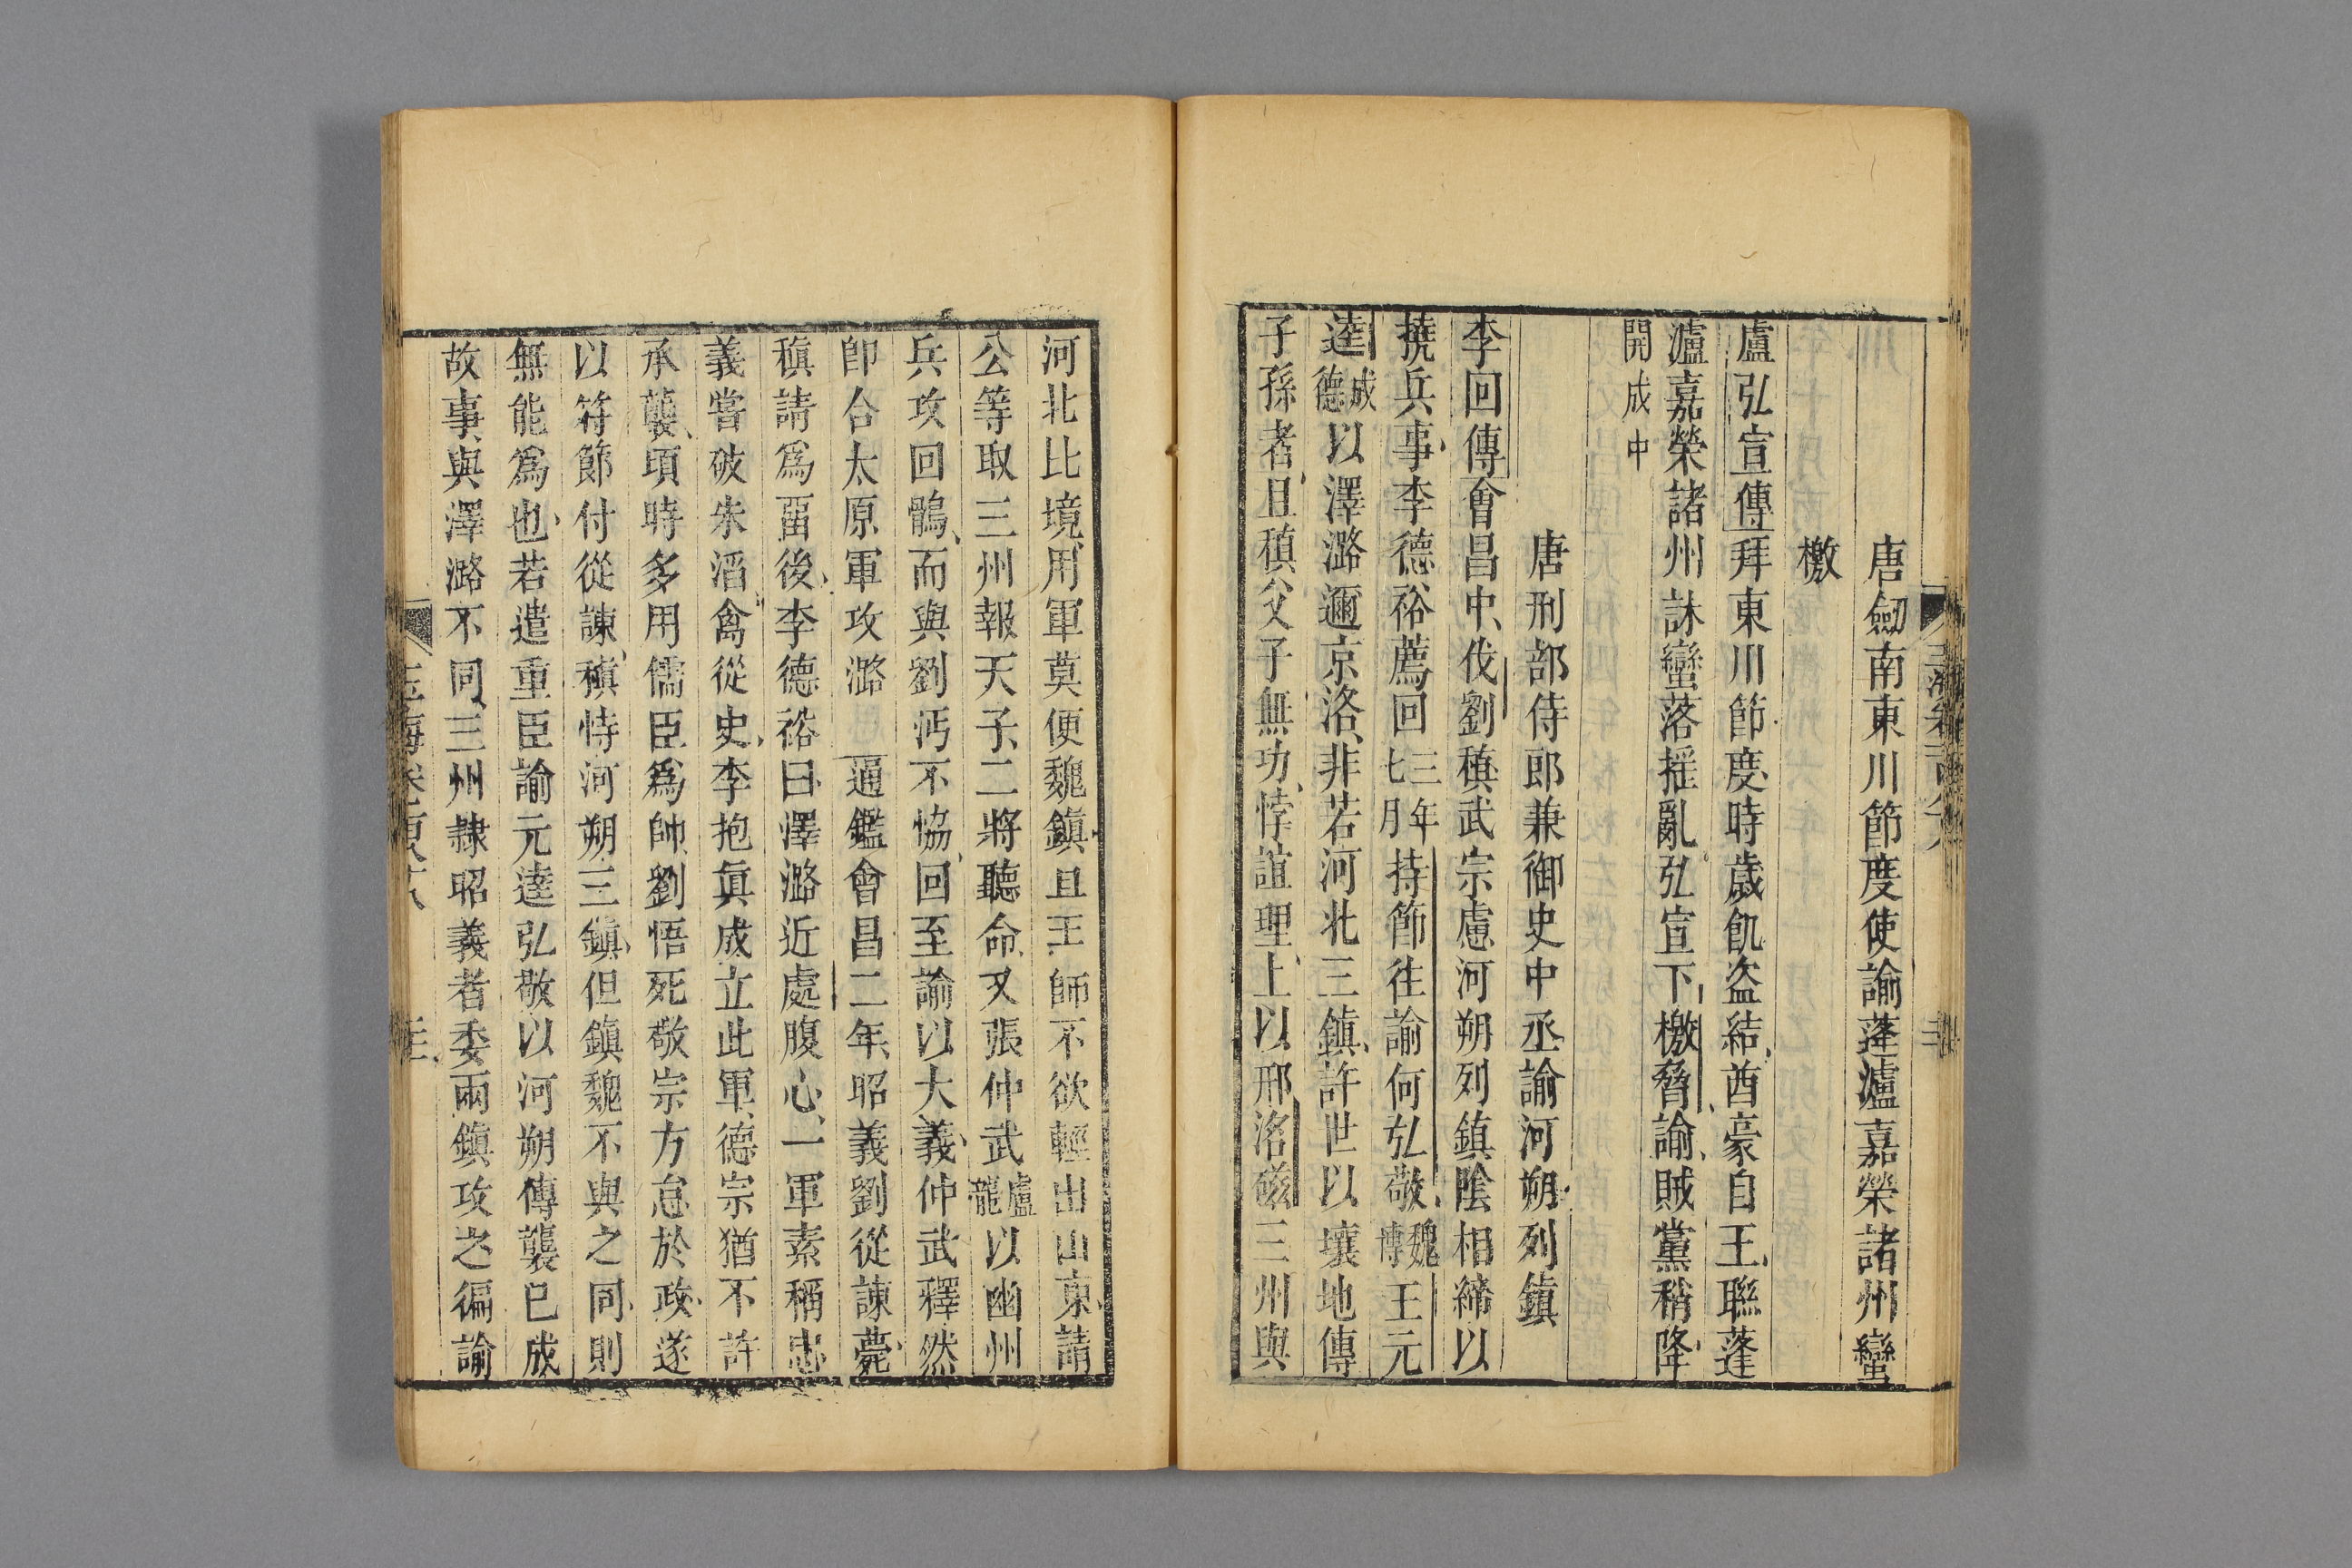 唐劒南東川節度使諭蓬瀘嘉榮諸州蠻
檄
盧弘宣傳拜東川節度時歲飢盗結酋豪自王聯蓬
瀘嘉榮諸州誅蠻落揺亂弘宣下檄脅諭賊黨稍降
開成中
唐刑部侍郎兼御史中丞諭河朔列鎮
李回傳會昌中伐劉稹武宗慮河朔列鎮陰相締以
撓兵事李德裕薦回三年七月持節往諭何弘敬魏博王元
逵成德以澤潞邇京洛非若河北三鎮許世以壤地傳
子孫者且稹父子無功悖誼理上以邢洺磁三州與
河北比境用軍莫便魏鎮且王師不欲輕出山東請
公等取三州報天子二將聽命又張仲武盧龍以幽州
兵攻回鶻而與劉沔不協回至諭以大義仲武釋然
卽合太原軍攻潞 通鑑會昌二年昭義劉從諫薨
稹請爲畱後李德裕曰澤潞近處腹心一軍素稱忠
義嘗破朱滔禽從史李抱眞成立此軍德宗猶不許
承襲頃時多用儒臣爲帥劉悟死敬宗方怠於政遂
以符節付從諫稹恃河朔三鎮但鎮魏不與之同則
無能爲也若遣重臣諭元逵弘敬以河朔傳襲已成
故事與澤潞不同三州隷昭義者委兩鎮攻之徧諭